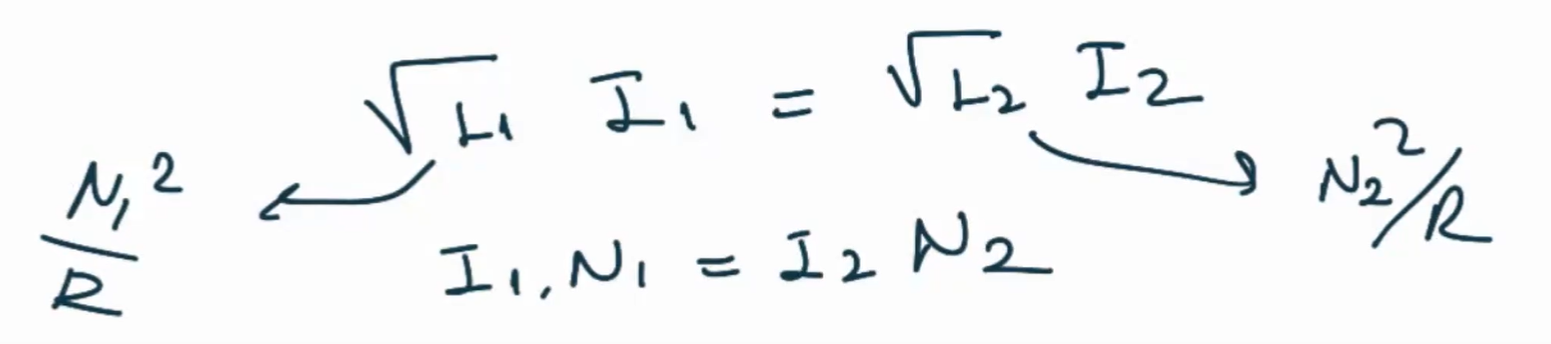 √L₁ I₁ = √L₂ I₂
N₁²/R
N₂²/R
I₁, N₁ = I₂ N₂